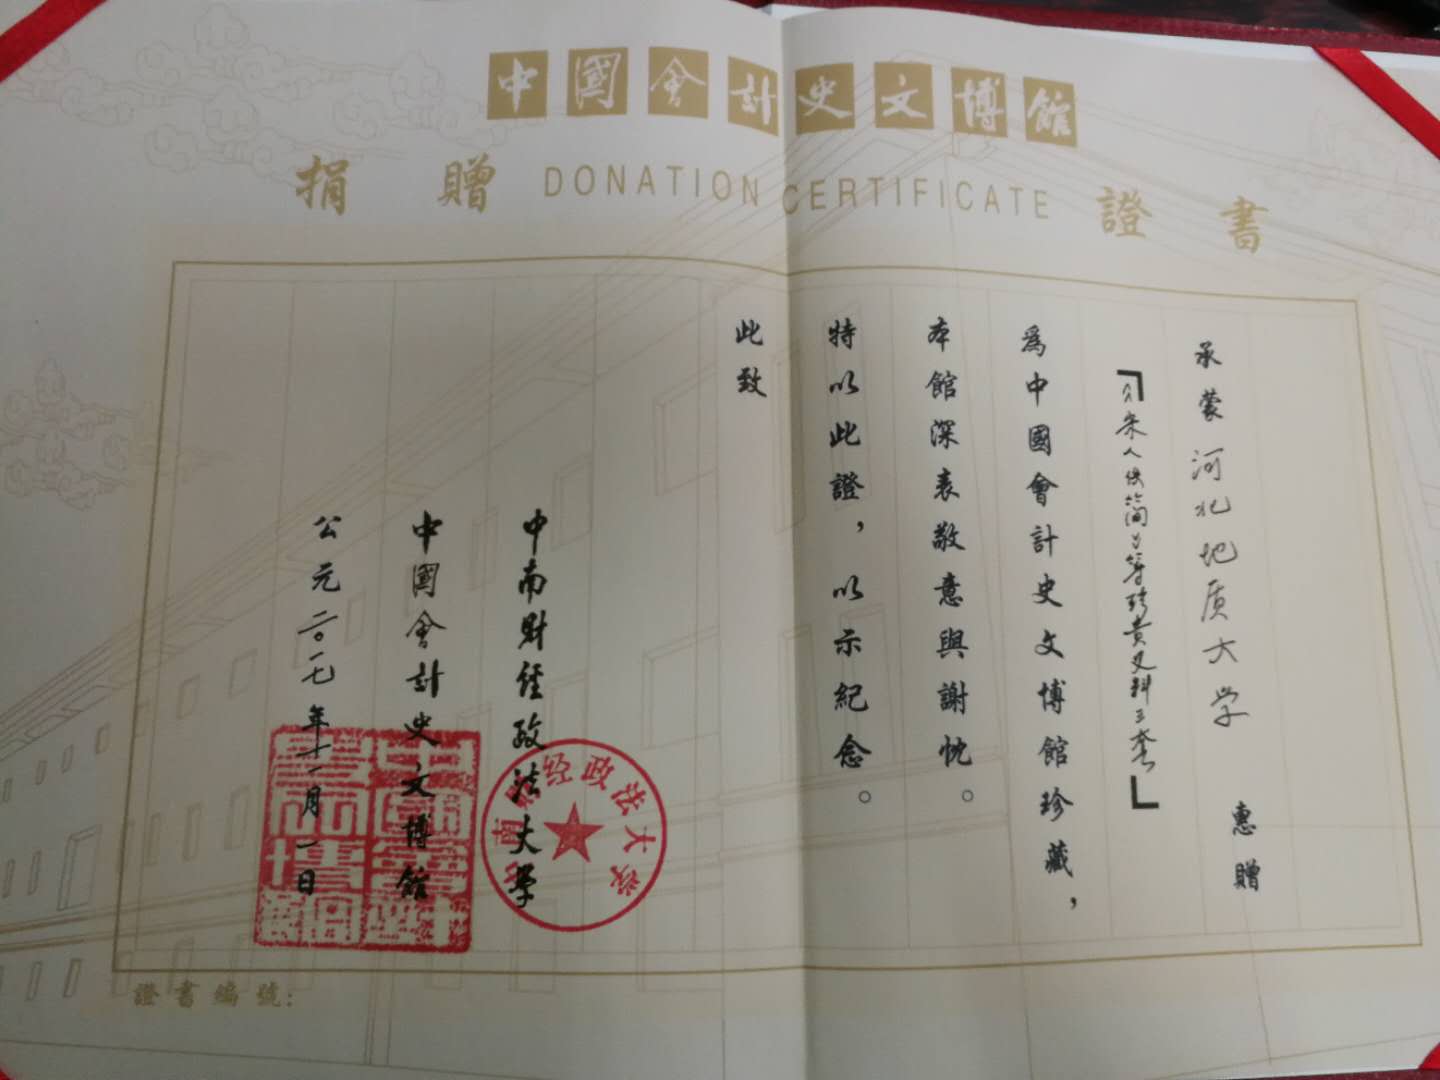 中國會計史文博館
捐贈 DONATION CERTIFICATE 證書
承蒙河北地质大学 惠贈
宋人佚简等珍贵史料三套
爲中國會計史文博館珍藏，
本館深表敬意與謝忱。
特以此證，以示紀念。
此致
中南财经政法大學
中國會計史文博館
公元二〇一七年十一月一日
南 经政法大学
證書編號: